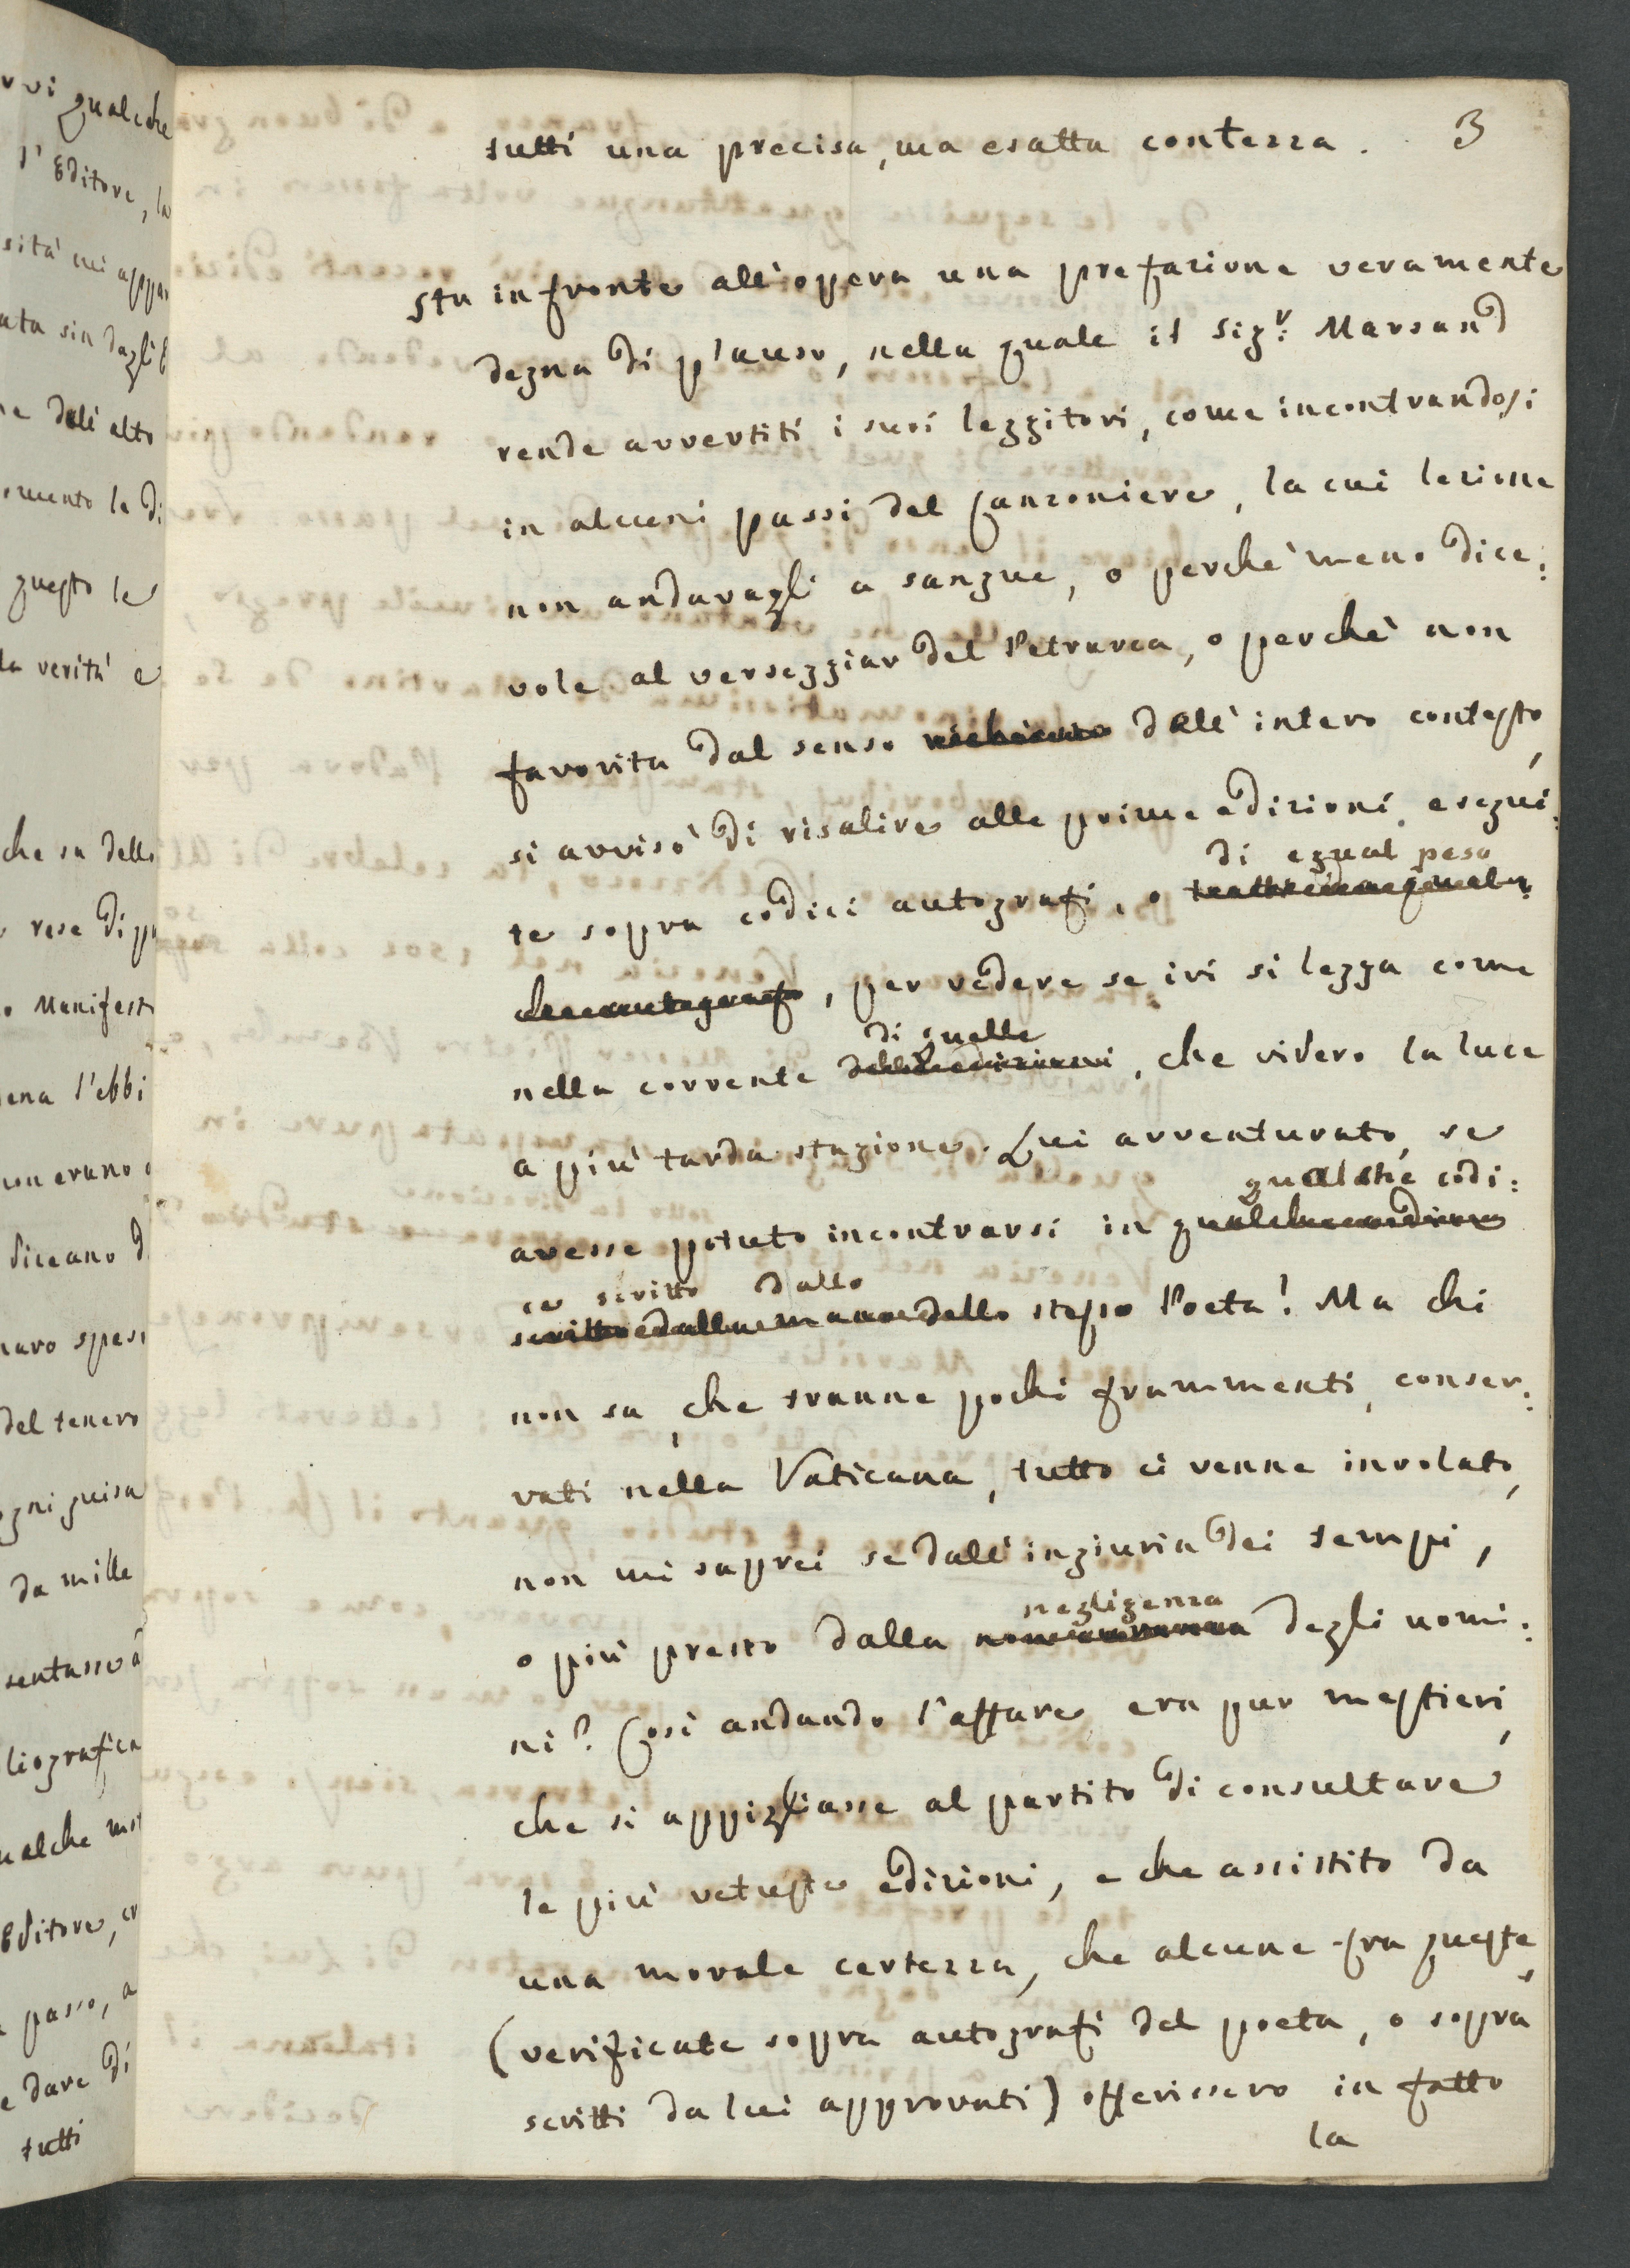 vi qualche
l'Editore, la
sità mi appar
ata sin dagli E
dall'alto
omento la di
questo le
la verità e
che su della
rese di pu
o Manifest
ena l'ebbi
non erano
diceano d
naro spesi
del tenero
ogni guisa
da mille
sentasse
liografica
ualche mo
Editore, er
passo, a
e dare di
tutti
3
tutti una precisa, ma esatta contezza.
Sta in fronte all'opera una prefazione veramente
degna di plauso, nella quale il Sigr: Marsand
rende avvertiti i suoi leggitori, come incontrandosi
in alcuni passi del Canzoniere, la cui lezione
non andavagli a sangue, o perchè meno dice:
vole al verseggiar del Petrarca, o perchè non
favorita dal senso richiesto dall'intero contesto,
si avvisò di risalire alle prime edizioni esegui:
di egual peso
te sopra codici autografi, o
, per vedere se ivi si legga come
di quelle
nella corrente delle edizioni, che videro la luce
a più tarda stagione. Lui avventurato, se
qualche codi:
avesse potuto incontrarsi in qualche
ce scritto dallo
scritto dalla mano dello stesso Poeta! Ma chi
non sa, che tranne pochi frammenti, conser:
vati nella Vaticana, tutto ci venne involato,
non mi saprei se dall'ingiuria dei tempi,
negligenza
o più presto dalla noncuranza degli uomi:
ni? Così andando l'affare era pur mestieri,
che si appigliasse al partito di consultare
le più vetuste edizioni, e che assistito da
una morale certezza, che alcune fra queste,
(verificate sopra autografi del poeta, o sopra
scritti da lui approvati) offerissero in fatto
la